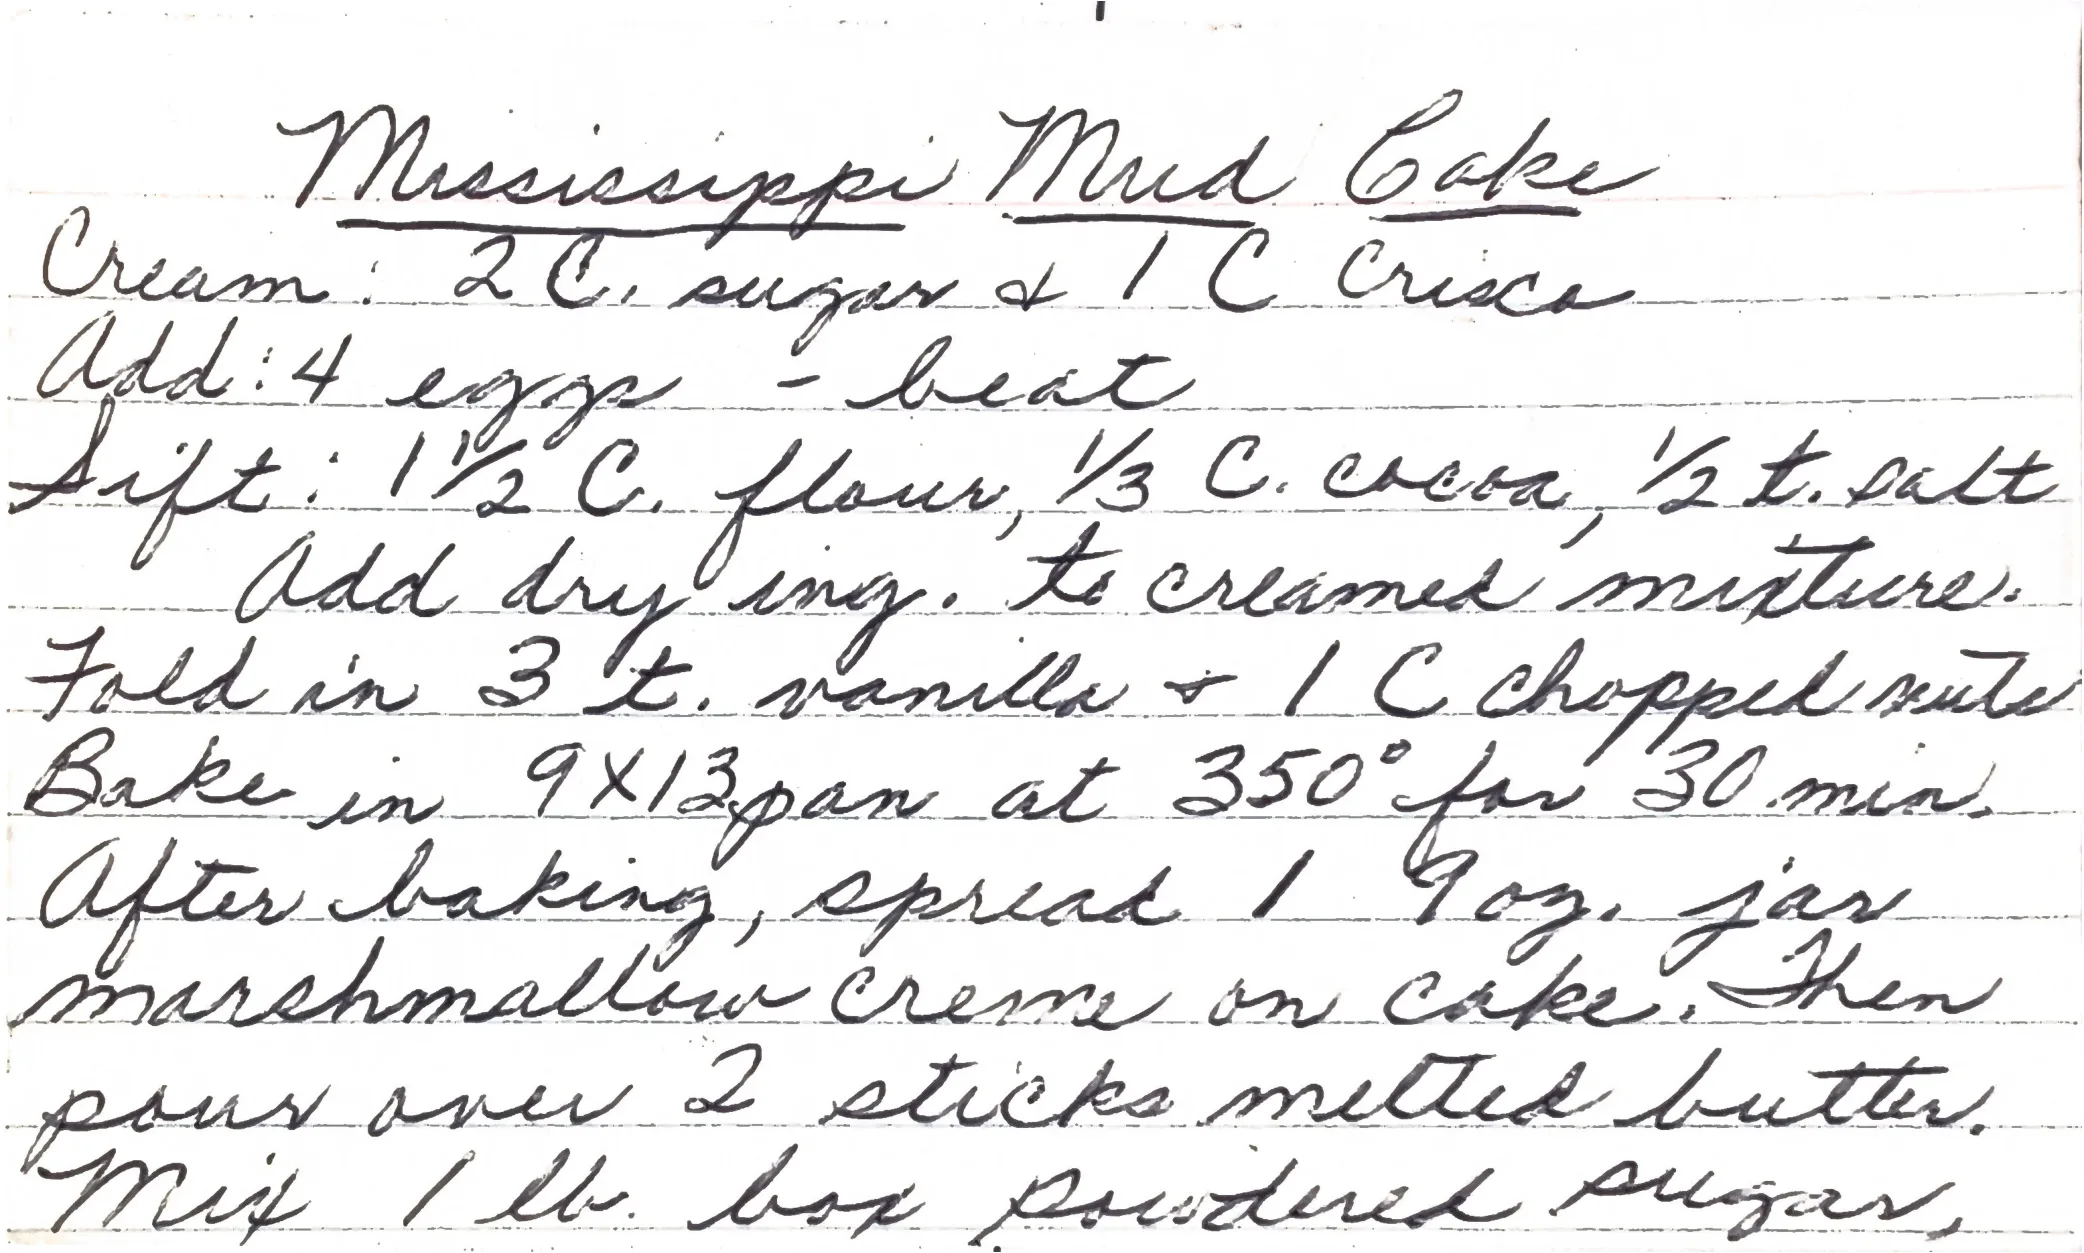 Mississippi Mud Cake
Cream: 2 C. sugar & 1 C Crisco
Add: 4 eggs - beat
Sift: 1 1/2 C. flour, 1/3 C. cocoa, 1/2 t. salt
Add dry ing. to creamed mixture.
Fold in 3 t. vanilla & 1 C chopped nuts
Bake in 9X13 pan at 350° for 30 min.
After baking, spread 1 9 oz. jar
marshmallow creme on cake. Then
pour over 2 sticks melted butter.
Mix 1 lb. box powdered sugar,